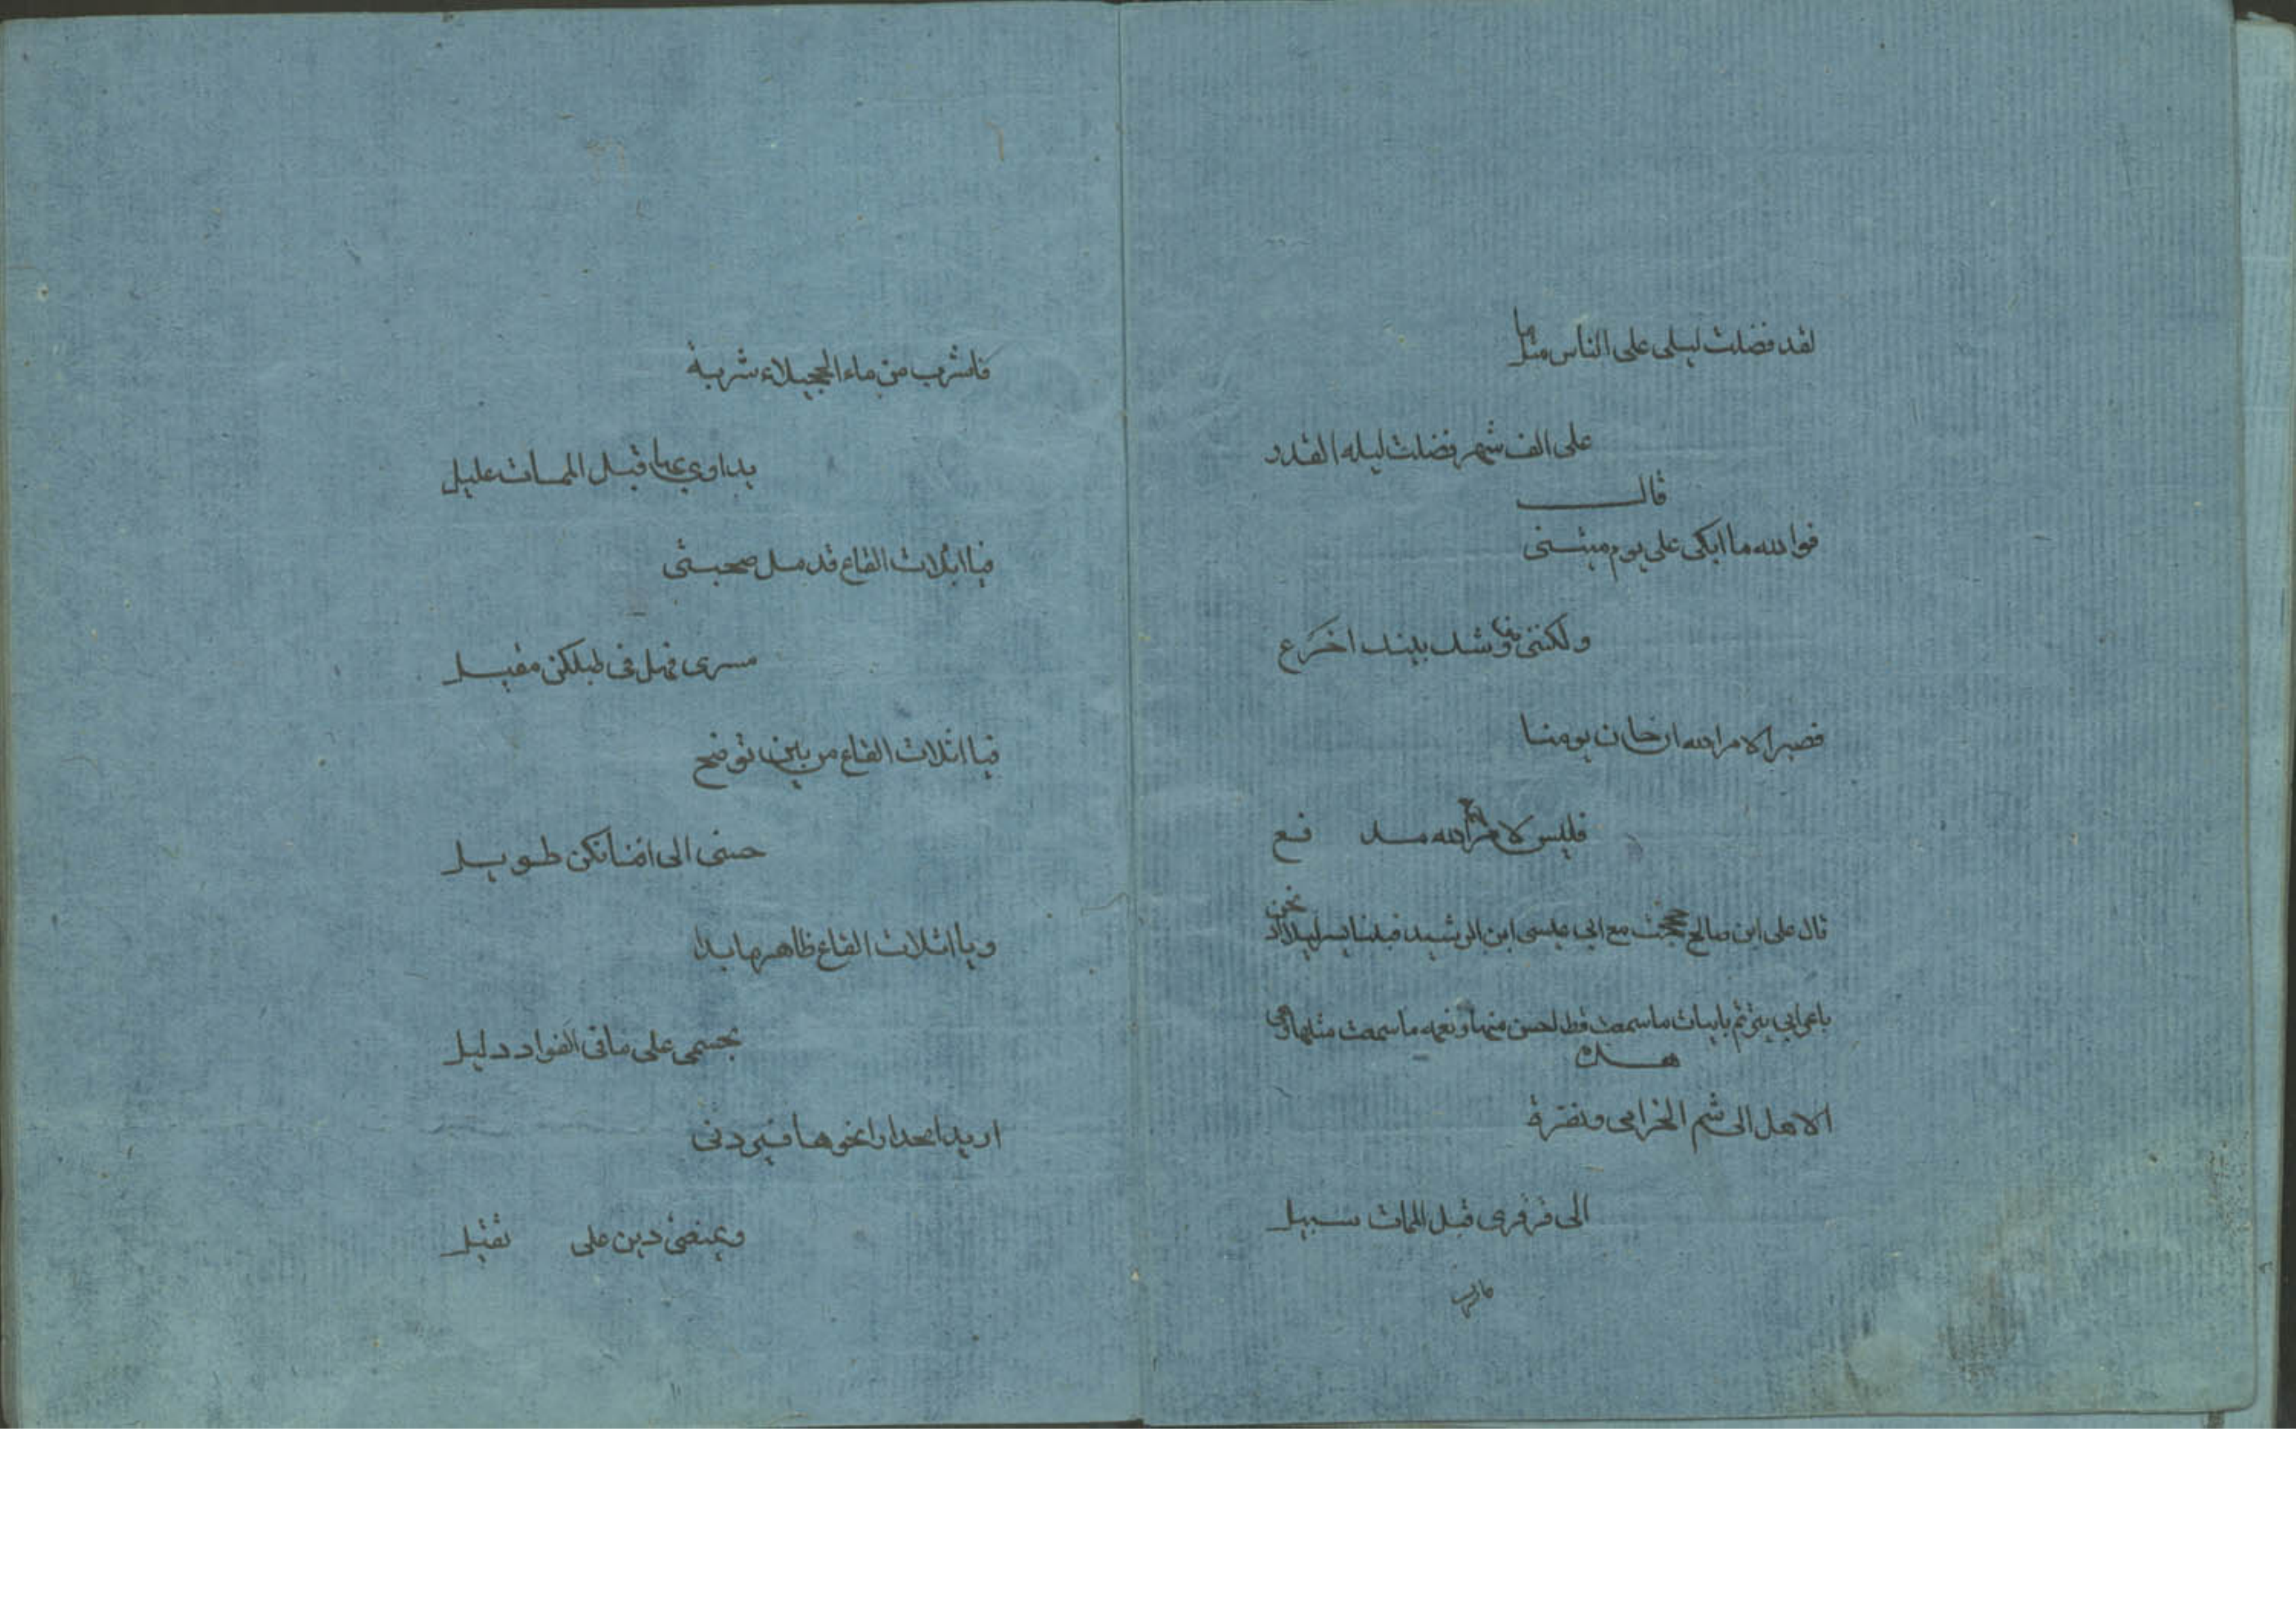 لقد فضلت ليلى على الناس مثلما
على الف شهر فضلت ليله القدر
قالـــ
فوالله ما ابكى على يوم ميتتى
ولكننى من وشك بينك اجزع
فصبرا لامر الله ان حان يومنا
فليس لامر الله مد فع
قال على ابن صالح حججت مع ابي عيسى ابن الرشيد فبينا يسير ليلا اذ نحن
باعرابي يترنم بابيات ما سمعت قط احسن منها ونغمه ما سمعت مثلها وهى
هــذه
الا هل الى شم الخزامى ونضرة
الى قرقرى قبل الممات سبيل
فاشرب
فاشرب من ماء الحجيلاء شربة
يداوي بها قبل الممات عليل
فيا اثلات القاع قد مل صحبتى
مسرى فهل فى ظلكن مقيل
فيا اثلات القاع من بين توضح
حنينى الى افنانكن طويل
ويا اثلات القاع ظاهر ما بدا
بجسمى على ما فى الفواد دليل
اريد انحدارا نحوها فيردنى
ويمنعنى دين على ثقيل